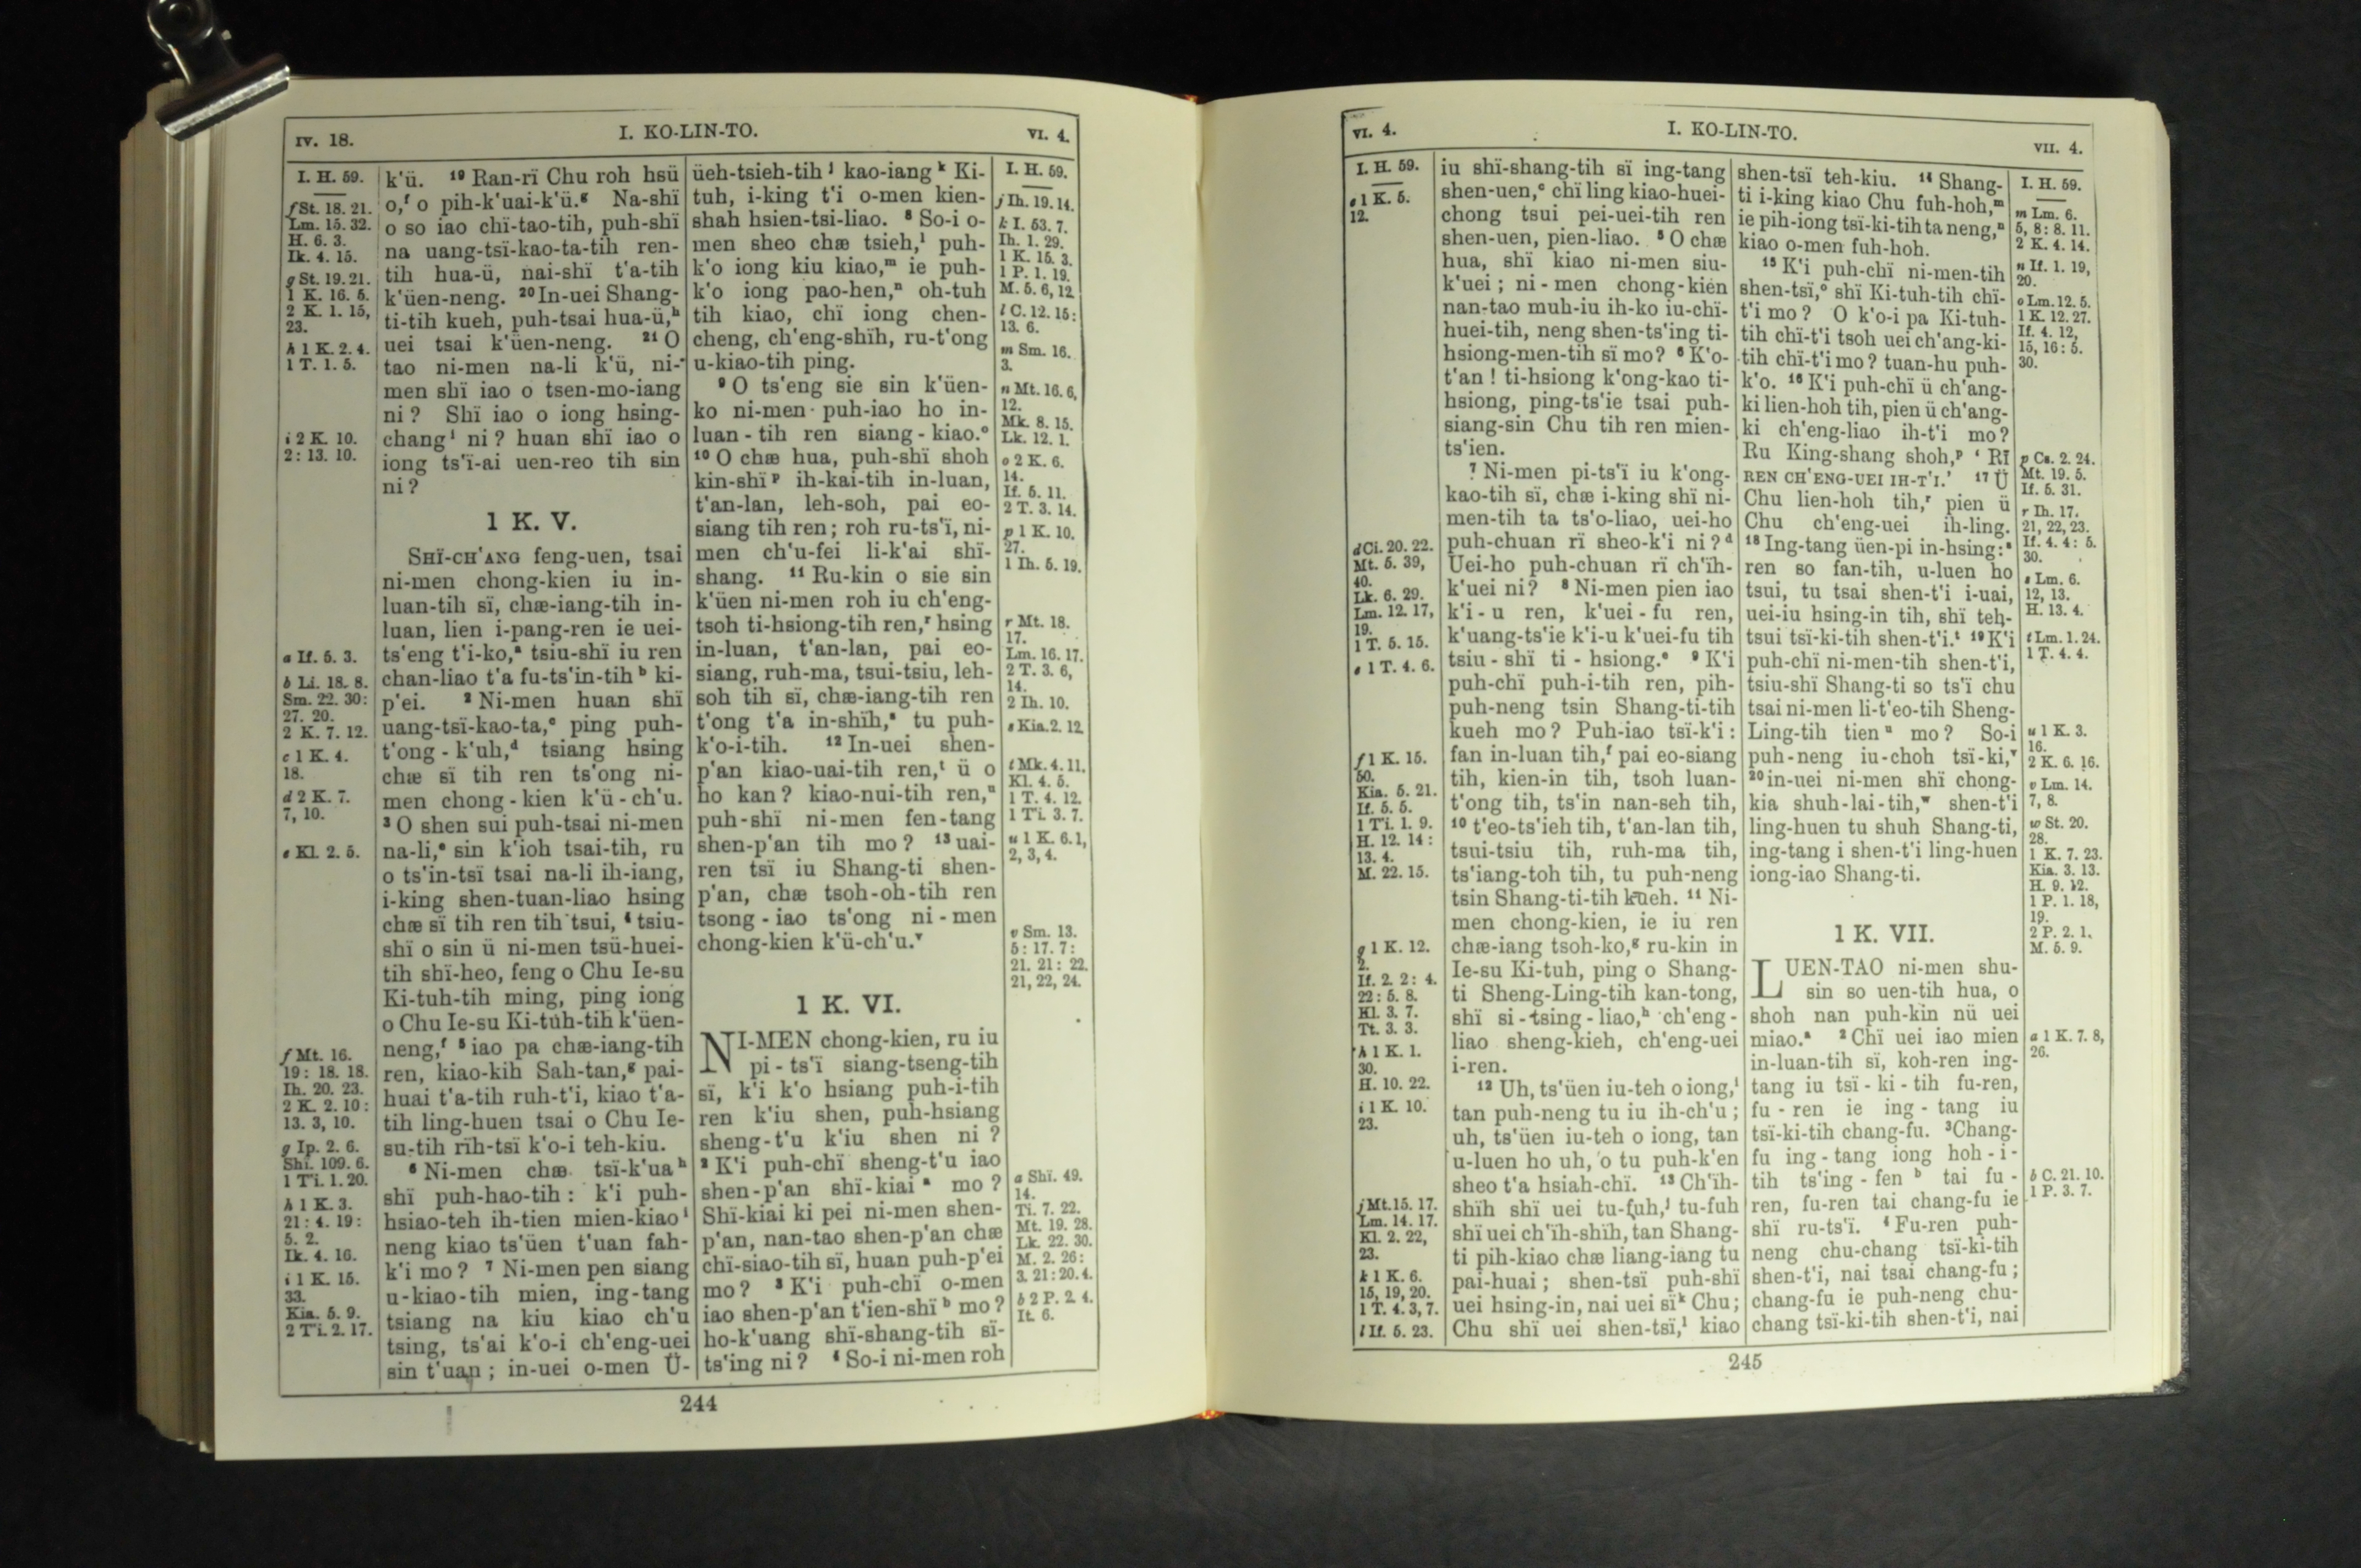 IV. 18.
I. KO-LIN-TO.
VI. 4.
I. H. 59.
f St. 18. 21.
Lm. 15. 32.
H. 6. 3.
Ik. 4. 15.
g St. 19. 21.
1 K. 16. 5.
2 K. 1. 15,
23.
h 1 K. 2. 4.
1 T. 1. 5.
i 2 K. 10.
2 : 13. 10.
a If. 5. 3.
b Li. 18. 8.
Sm. 22. 30 :
27. 20.
2 K. 7. 12.
c 1 K. 4.
18.
d 2 K. 7.
7, 10.
e Kl. 2. 5.
f Mt. 16.
19 : 18. 18.
Ih. 20. 23.
2 K. 2. 10 :
13. 3, 10.
g Ip. 2. 6.
Shï. 109. 6.
1 Ti. 1. 20.
h 1 K. 3.
21 : 4. 19 :
5. 2.
Ik. 4. 16.
i 1 K. 15.
33.
Kia. 5. 9.
2 Ti. 2. 17.
k'ü. 19 Ran-rï Chu roh hsü
o,f o pih-k'uai-k'ü.g Na-shï
o so iao chï-tao-tih, puh-shï
na uang-tsï-kao-ta-tih ren-
tih hua-ü, nai-shï t'a-tih
k'üen-neng. 20 In-uei Shang-
ti-tih kueh, puh-tsai hua-ü,h
uei tsai k'üen-neng. 21 O
tao ni-men na-li k'ü, ni-
men shï iao o tsen-mo-iang
ni ? Shï iao o iong hsing-
chang i ni ? huan shï iao o
iong ts'ï-ai uen-reo tih sin
ni ?
1 K. V.
SHÏ-CH'ANG feng-uen, tsai
ni-men chong-kien iu in-
luan-tih sï, chæ-iang-tih in-
luan, lien i-pang-ren ie uei-
ts'eng t'i-ko,a tsiu-shï iu ren
chan-liao t'a fu-ts'in-tih b ki-
p'ei. 2 Ni-men huan shï
uang-tsï-kao-ta,c ping puh-
t'ong - k'uh,d tsiang hsing
chæ sï tih ren ts'ong ni-
men chong - kien k'ü - ch'u.
3 O shen sui puh-tsai ni-men
na-li,e sin k'ioh tsai-tih, ru
o ts'in-tsï tsai na-li ih-iang,
i-king shen-tuan-liao hsing
chæ sï tih ren tih tsui, 4 tsiu-
shï o sin ü ni-men tsü-huei-
tih shï-heo, feng o Chu Ie-su
Ki-tuh-tih ming, ping iong
o Chu Ie-su Ki-tuh-tih k'üen-
neng,f 5 iao pa chæ-iang-tih
ren, kiao-kih Sah-tan,g pai-
huai t'a-tih ruh-t'i, kiao t'a-
tih ling-huen tsai o Chu Ie-
su-tih rïh-tsï k'o-i teh-kiu.
6 Ni-men chæ tsï-k'ua h
shï puh-hao-tih : k'i puh-
hsiao-teh ih-tien mien-kiao i
neng kiao ts'üen t'uan fah-
k'i mo ? 7 Ni-men pen siang
u-kiao-tih mien, ing-tang
tsiang na kiu kiao ch'u
tsing, ts'ai k'o-i ch'eng-uei
sin t'uan ; in-uei o-men Ü-
üeh-tsieh-tih j kao-iang k Ki-
tuh, i-king t'i o-men kien-
shah hsien-tsi-liao. 8 So-i o-
men sheo chæ tsieh,l puh-
k'o iong kiu kiao,m ie puh-
k'o iong pao-hen,n oh-tuh
tih kiao, chï iong chen-
cheng, ch'eng-shïh, ru-t'ong
u-kiao-tih ping.
9 O ts'eng sie sin k'üen-
ko ni-men puh-iao ho in-
luan - tih ren siang - kiao.o
10 O chæ hua, puh-shï shoh
kin-shï p ih-kai-tih in-luan,
t'an-lan, leh-soh, pai eo-
siang tih ren ; roh ru-ts'ï, ni-
men ch'u-fei li-k'ai shï-
shang. 11 Ru-kin o sie sin
k'üen ni-men roh iu ch'eng-
tsoh ti-hsiong-tih ren,r hsing
in-luan, t'an-lan, pai eo-
siang, ruh-ma, tsui-tsiu, leh-
soh tih sï, chæ-iang-tih ren
t'ong t'a in-shïh,s tu puh-
k'o-i-tih. 12 In-uei shen-
p'an kiao-uai-tih ren,t ü o
ho kan ? kiao-nui-tih ren,u
puh-shï ni-men fen-tang
shen-p'an tih mo ? 13 uai-
ren tsï iu Shang-ti shen-
p'an, chæ tsoh-oh-tih ren
tsong - iao ts'ong ni - men
chong-kien k'ü-ch'u.v
1 K. VI.
NI-MEN chong-kien, ru iu
pi - ts'ï siang-tseng-tih
sï, k'i k'o hsiang puh-i-tih
ren k'iu shen, puh-hsiang
sheng-t'u k'iu shen ni ?
2 K'i puh-chï sheng-t'u iao
shen-p'an shï-kiai a mo ?
Shï-kiai ki pei ni-men shen-
p'an, nan-tao shen-p'an chæ
chï-siao-tih sï, huan puh-p'ei
mo ? 3 K'i puh-chï o-men
iao shen-p'an t'ien-shï b mo ?
ho-k'uang shï-shang-tih sï-
ts'ing ni ? 4 So-i ni-men roh
I. H. 59.
j Ih. 19. 14.
k I. 53. 7.
Ih. 1. 29.
1 K. 15. 3.
1 P. 1. 19.
M. 5. 6, 12.
l C. 12. 15 :
13. 6.
m Sm. 16.
3.
n Mt. 16. 6,
12.
Mk. 8. 15.
Lk. 12. 1.
o 2 K. 6.
14.
If. 5. 11.
2 T. 3. 14.
p 1 K. 10.
27.
1 Ih. 5. 19.
r Mt. 18.
17.
Lm. 16. 17.
2 T. 3. 6,
14.
2 Ih. 10.
s Kia. 2. 12.
t Mk. 4. 11.
Kl. 4. 5.
1 T. 4. 12.
1 Ti. 3. 7.
u 1 K. 6. 1,
2, 3, 4.
v Sm. 13.
5 : 17. 7 :
21. 21 : 22.
21, 22, 24.
a Shï. 49.
14.
Ti. 7. 22.
Mt. 19. 28.
Lk. 22. 30.
M. 2. 26 :
3. 21 : 20. 4.
b 2 P. 2. 4.
It. 6.
244
VI. 4.
I. KO-LIN-TO.
VII. 4.
I. H. 59.
c 1 K. 5.
12.
d Ci. 20. 22.
Mt. 5. 39,
40.
Lk. 6. 29.
Lm. 12. 17,
19.
1 T. 5. 15.
e 1 T. 4. 6.
f 1 K. 15.
50.
Kia. 5. 21.
If. 5. 5.
1 Ti. 1. 9.
H. 12. 14 :
13. 4.
M. 22. 15.
g 1 K. 12.
2.
If. 2. 2 : 4.
22 : 5. 8.
Kl. 3. 7.
Tt. 3. 3.
h 1 K. 1.
30.
H. 10. 22.
i 1 K. 10.
23.
j Mt. 15. 17.
Lm. 14. 17.
Kl. 2. 22,
23.
k 1 K. 6.
15, 19, 20.
1 T. 4. 3, 7.
l If. 5. 23.
iu shï-shang-tih sï ing-tang
shen-uen,c chï ling kiao-huei-
chong tsui pei-uei-tih ren
shen-uen, pien-liao. 5 O chæ
hua, shï kiao ni-men siu-
k'uei ; ni - men chong-kien
nan-tao muh-iu ih-ko iu-chï-
huei-tih, neng shen-ts'ing ti-
hsiong-men-tih sï mo ? 6 K'o-
t'an ! ti-hsiong k'ong-kao ti-
hsiong, ping-ts'ie tsai puh-
siang-sin Chu tih ren mien-
ts'ien.
7 Ni-men pi-ts'ï iu k'ong-
kao-tih sï, chæ i-king shï ni-
men-tih ta ts'o-liao, uei-ho
puh-chuan rï sheo-k'i ni ? d
Uei-ho puh-chuan rï ch'ïh-
k'uei ni ? 8 Ni-men pien iao
k'i - u ren, k'uei - fu ren,
k'uang-ts'ie k'i-u k'uei-fu tih
tsiu - shï ti - hsiong.e 9 K'i
puh-chï puh-i-tih ren, pih-
puh-neng tsin Shang-ti-tih
kueh mo ? Puh-iao tsï-k'i :
fan in-luan tih,f pai eo-siang
tih, kien-in tih, tsoh luan-
t'ong tih, ts'in nan-seh tih,
10 t'eo-ts'ieh tih, t'an-lan tih,
tsui-tsiu tih, ruh-ma tih,
ts'iang-toh tih, tu puh-neng
tsin Shang-ti-tih kueh. 11 Ni-
men chong-kien, ie iu ren
chæ-iang tsoh-ko,g ru-kin in
Ie-su Ki-tuh, ping o Shang-
ti Sheng-Ling-tih kan-tong,
shï si - tsing - liao,h ch'eng -
liao sheng-kieh, ch'eng-uei
i-ren.
12 Uh, ts'üen iu-teh o iong,i
tan puh-neng tu iu ih-ch'u ;
uh, ts'üen iu-teh o iong, tan
u-luen ho uh, o tu puh-k'en
sheo t'a hsiah-chï. 13 Ch'ïh-
shïh shï uei tu-fuh,j tu-fuh
shï uei ch'ïh-shïh, tan Shang-
ti pih-kiao chæ liang-iang tu
pai-huai ; shen-tsï puh-shï
uei hsing-in, nai uei sï k Chu ;
Chu shï uei shen-tsï,l kiao
shen-tsï teh-kiu. 14 Shang-
ti i-king kiao Chu fuh-hoh,m
ie pih-iong tsï-ki-tih ta neng,n
kiao o-men fuh-hoh.
15 K'i puh-chï ni-men-tih
shen-tsï,o shï Ki-tuh-tih chï-
t'i mo ? O k'o-i pa Ki-tuh-
tih chï-t'i tsoh uei ch'ang-ki-
tih chï-t'i mo ? tuan-hu puh-
k'o. 16 K'i puh-chï ü ch'ang-
ki lien-hoh tih, pien ü ch'ang-
ki ch'eng-liao ih-t'i mo ?
Ru King-shang shoh,p ' RÏ
REN CH'ENG-UEI IH-T'I.' 17 Ü
Chu lien-hoh tih,r pien ü
Chu ch'eng-uei ih-ling.
18 Ing-tang üen-pi in-hsing : s
ren so fan-tih, u-luen ho
tsui, tu tsai shen-t'i i-uai,
uei-iu hsing-in tih, shï teh-
tsui tsï-ki-tih shen-t'i.t 19 K'i
puh-chï ni-men-tih shen-t'i,
tsiu-shï Shang-ti so ts'ï chu
tsai ni-men li-t'eo-tih Sheng-
Ling-tih tien u mo ? So-i
puh-neng iu-choh tsï-ki,v
20 in-uei ni-men shï chong-
kia shuh-lai-tih,w shen-t'i
ling-huen tu shuh Shang-ti,
ing-tang i shen-t'i ling-huen
iong-iao Shang-ti.
1 K. VII.
LUEN-TAO ni-men shu-
sin so uen-tih hua, o
shoh nan puh-kin nü uei
miao.a 2 Chï uei iao mien
in-luan-tih sï, koh-ren ing-
tang iu tsï - ki - tih fu-ren,
fu - ren ie ing - tang iu
tsï-ki-tih chang-fu. 3 Chang-
fu ing - tang iong hoh - i -
tih ts'ing - fen b tai fu -
ren, fu-ren tai chang-fu ie
shï ru-ts'ï. 4 Fu-ren puh-
neng chu-chang tsï-ki-tih
shen-t'i, nai tsai chang-fu ;
chang-fu ie puh-neng chu-
chang tsï-ki-tih shen-t'i, nai
I. H. 59.
m Lm. 6.
5, 8 : 8. 11.
2 K. 4. 14.
n If. 1. 19,
20.
o Lm. 12. 5.
1 K. 12. 27.
If. 4. 12,
15, 16 : 5.
30.
p Cs. 2. 24.
Mt. 19. 5.
If. 5. 31.
r Ih. 17.
21, 22, 23.
If. 4. 4 : 5.
30.
s Lm. 6.
12, 13.
H. 13. 4.
t Lm. 1. 24.
1 T. 4. 4.
u 1 K. 3.
16.
2 K. 6. 16.
v Lm. 14.
7, 8.
w St. 20.
28.
1 K. 7. 23.
Kia. 3. 13.
H. 9. 12.
1 P. 1. 18,
19.
2 P. 2. 1.
M. 5. 9.
a 1 K. 7. 8,
26.
b C. 21. 10.
1 P. 3. 7.
245